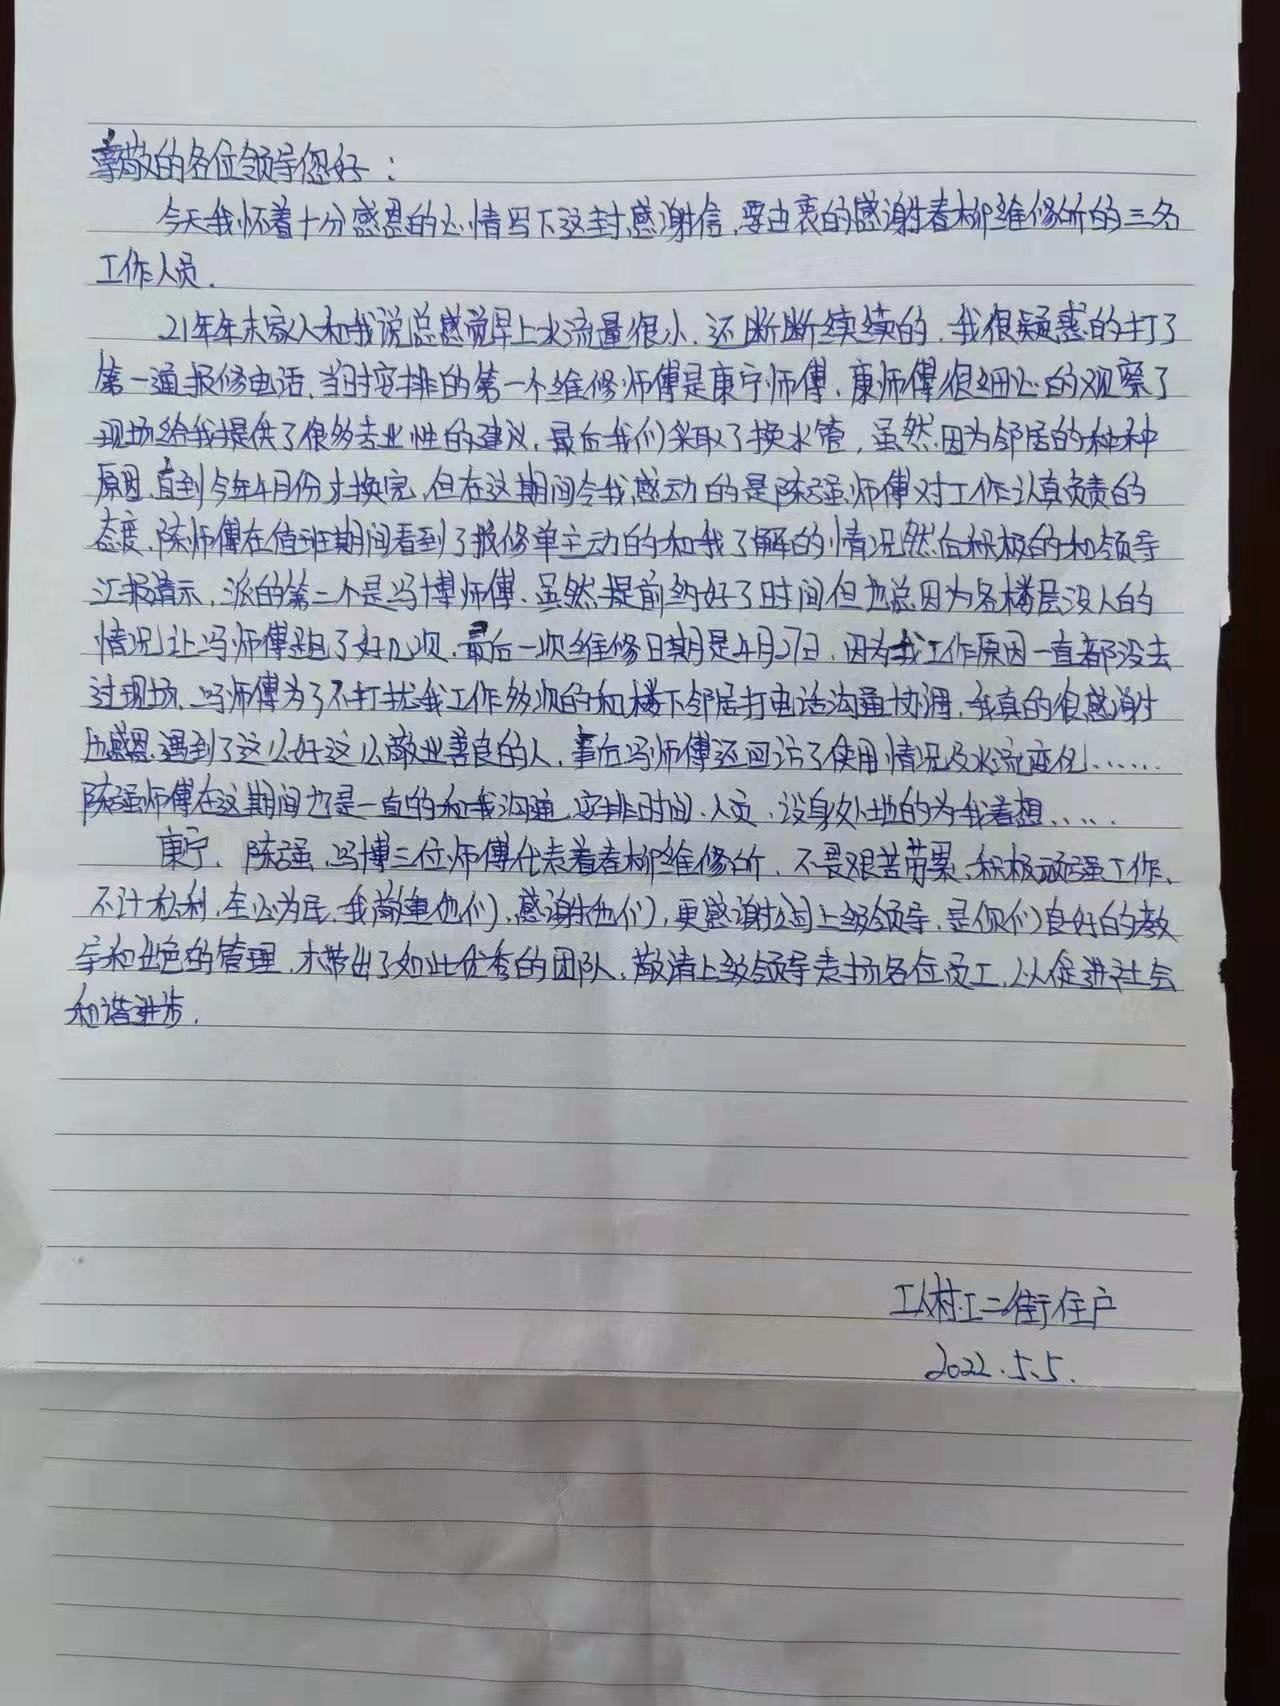 尊敬的各位领导您好：
今天我怀着十分感恩的心情写下这封感谢信,要由衷的感谢春柳维修所的三名
工作人员.
21年年末家人和我说总感觉早上水流量很小,还断断续续的,我很疑惑的打了
第一通报修电话,当时安排的第一个维修师傅是康宁师傅,康师傅很细心的观察了
现场给我提供了很多专业性的建议,最后我们采取了换水管,虽然因为邻居的种种
原因,直到今年4月份才换完,但在这期间令我感动的是陈强师傅对工作认真负责的
态度,陈师傅在值班期间看到了报修单主动的和我了解的情况然后积极的和领导
汇报请示,派的第二个是冯博师傅.虽然提前约好了时间但也总因为各楼层没人的
情况让冯师傅跑了好几次,最后一次维修日期是4月27日,因为我工作原因一直都没去
过现场,冯师傅为了不打扰我工作多次的和楼下邻居打电话沟通协调,我真的很感谢
也感恩遇到了这么好这么敬业善良的人,事后冯师傅还回访了使用情况及水流变化......
陈强师傅在这期间也是一直的和我沟通,安排时间、人员,设身处地的为我着想.....
康宁、陈强、冯博三位师傅代表着春柳维修所,不畏艰苦劳累、积极顽强工作、
不计私利,全心为民,我敬重他们,感谢他们,更感谢公司上级领导,是你们良好的教
导和出色的管理,才带出了如此优秀的团队,敬请上级领导表扬各位员工,以促进社会
和谐进步.
工人村工二街住户
2022.5.5.